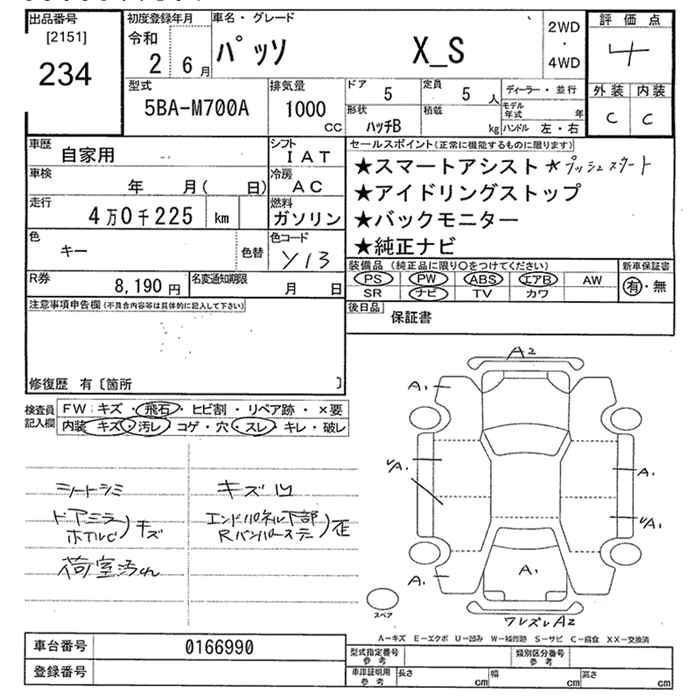 出品番号
[2151]
234
初度登録年月
令和
2 6月
車名・グレード
パッソ X_S
2WD
・
4WD
評価点
4
外装 内装
C C
型式
5BA-M700A
排気量
1000
cc
ドア
5
定員
5人
形状
ハッチB
積載
kg
ディーラー・並行
モデル年式 年
ハンドル 左・右
車歴 自家用
シフト
IAT
車検 年 月( 日)
冷房
AC
走行 4万0千225 km
燃料
ガソリン
色 キー 色替
色コード
Y13
R券 8,190円
名変通知期限 月 日
セールスポイント(正常に機能するものに限ります)
★スマートアシスト ★プッシュスタート
★アイドリングストップ
★バックモニター
★純正ナビ
装備品 (純正品に限り○をつけてください)
新車保証書
PS PW ABS エアB AW
有・無
SR ナビ TV カワ
後日品 保証書
注意事項申告欄(不具合内容等は具体的に記入して下さい)
修復歴 有〔箇所 〕
検査員記入欄
FW:キズ・飛石・ヒビ割・リペア跡・×要
内装 キズ・汚レ・コゲ・穴・スレ・キレ・破レ
シートシミ
ドアミラ
ホイルC)キズ
荷室汚れ
キズ凹
エンドパネル下部
Rバンパーステー)歪
A2
A1
√A1
A1
√A1
A1
A1
ワレズレA2
スペア
A-キズ E-エクボ U-凹み W-補修跡 S-サビ C-腐食 XX-交換済
車台番号 0166990
登録番号
型式指定番号
参考
類別区分番号
参考
車庫証明用
参考
長さ cm
幅 cm
高さ cm